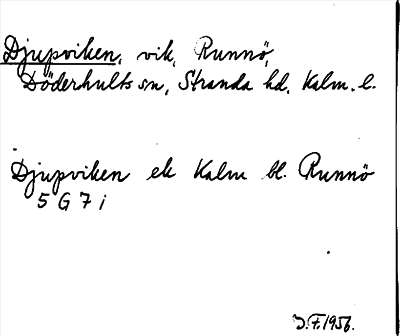 Djupviken, vik, Runnö,
Döderhults sn, Stranda hd, Kalm. l.
Djupviken ek Kalm bl. Runnö
5 G 7 i
J.F. 1956.